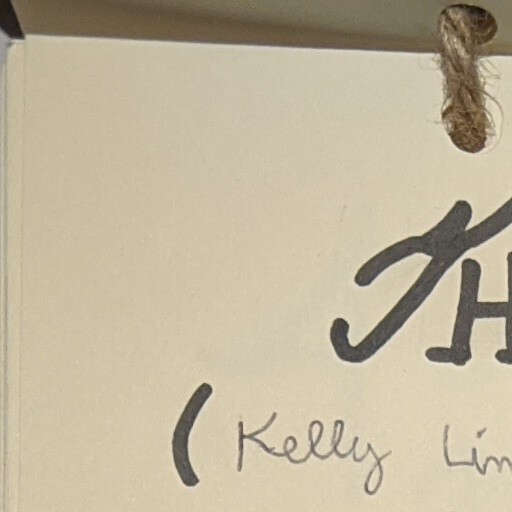 TH
(Kelly Lin